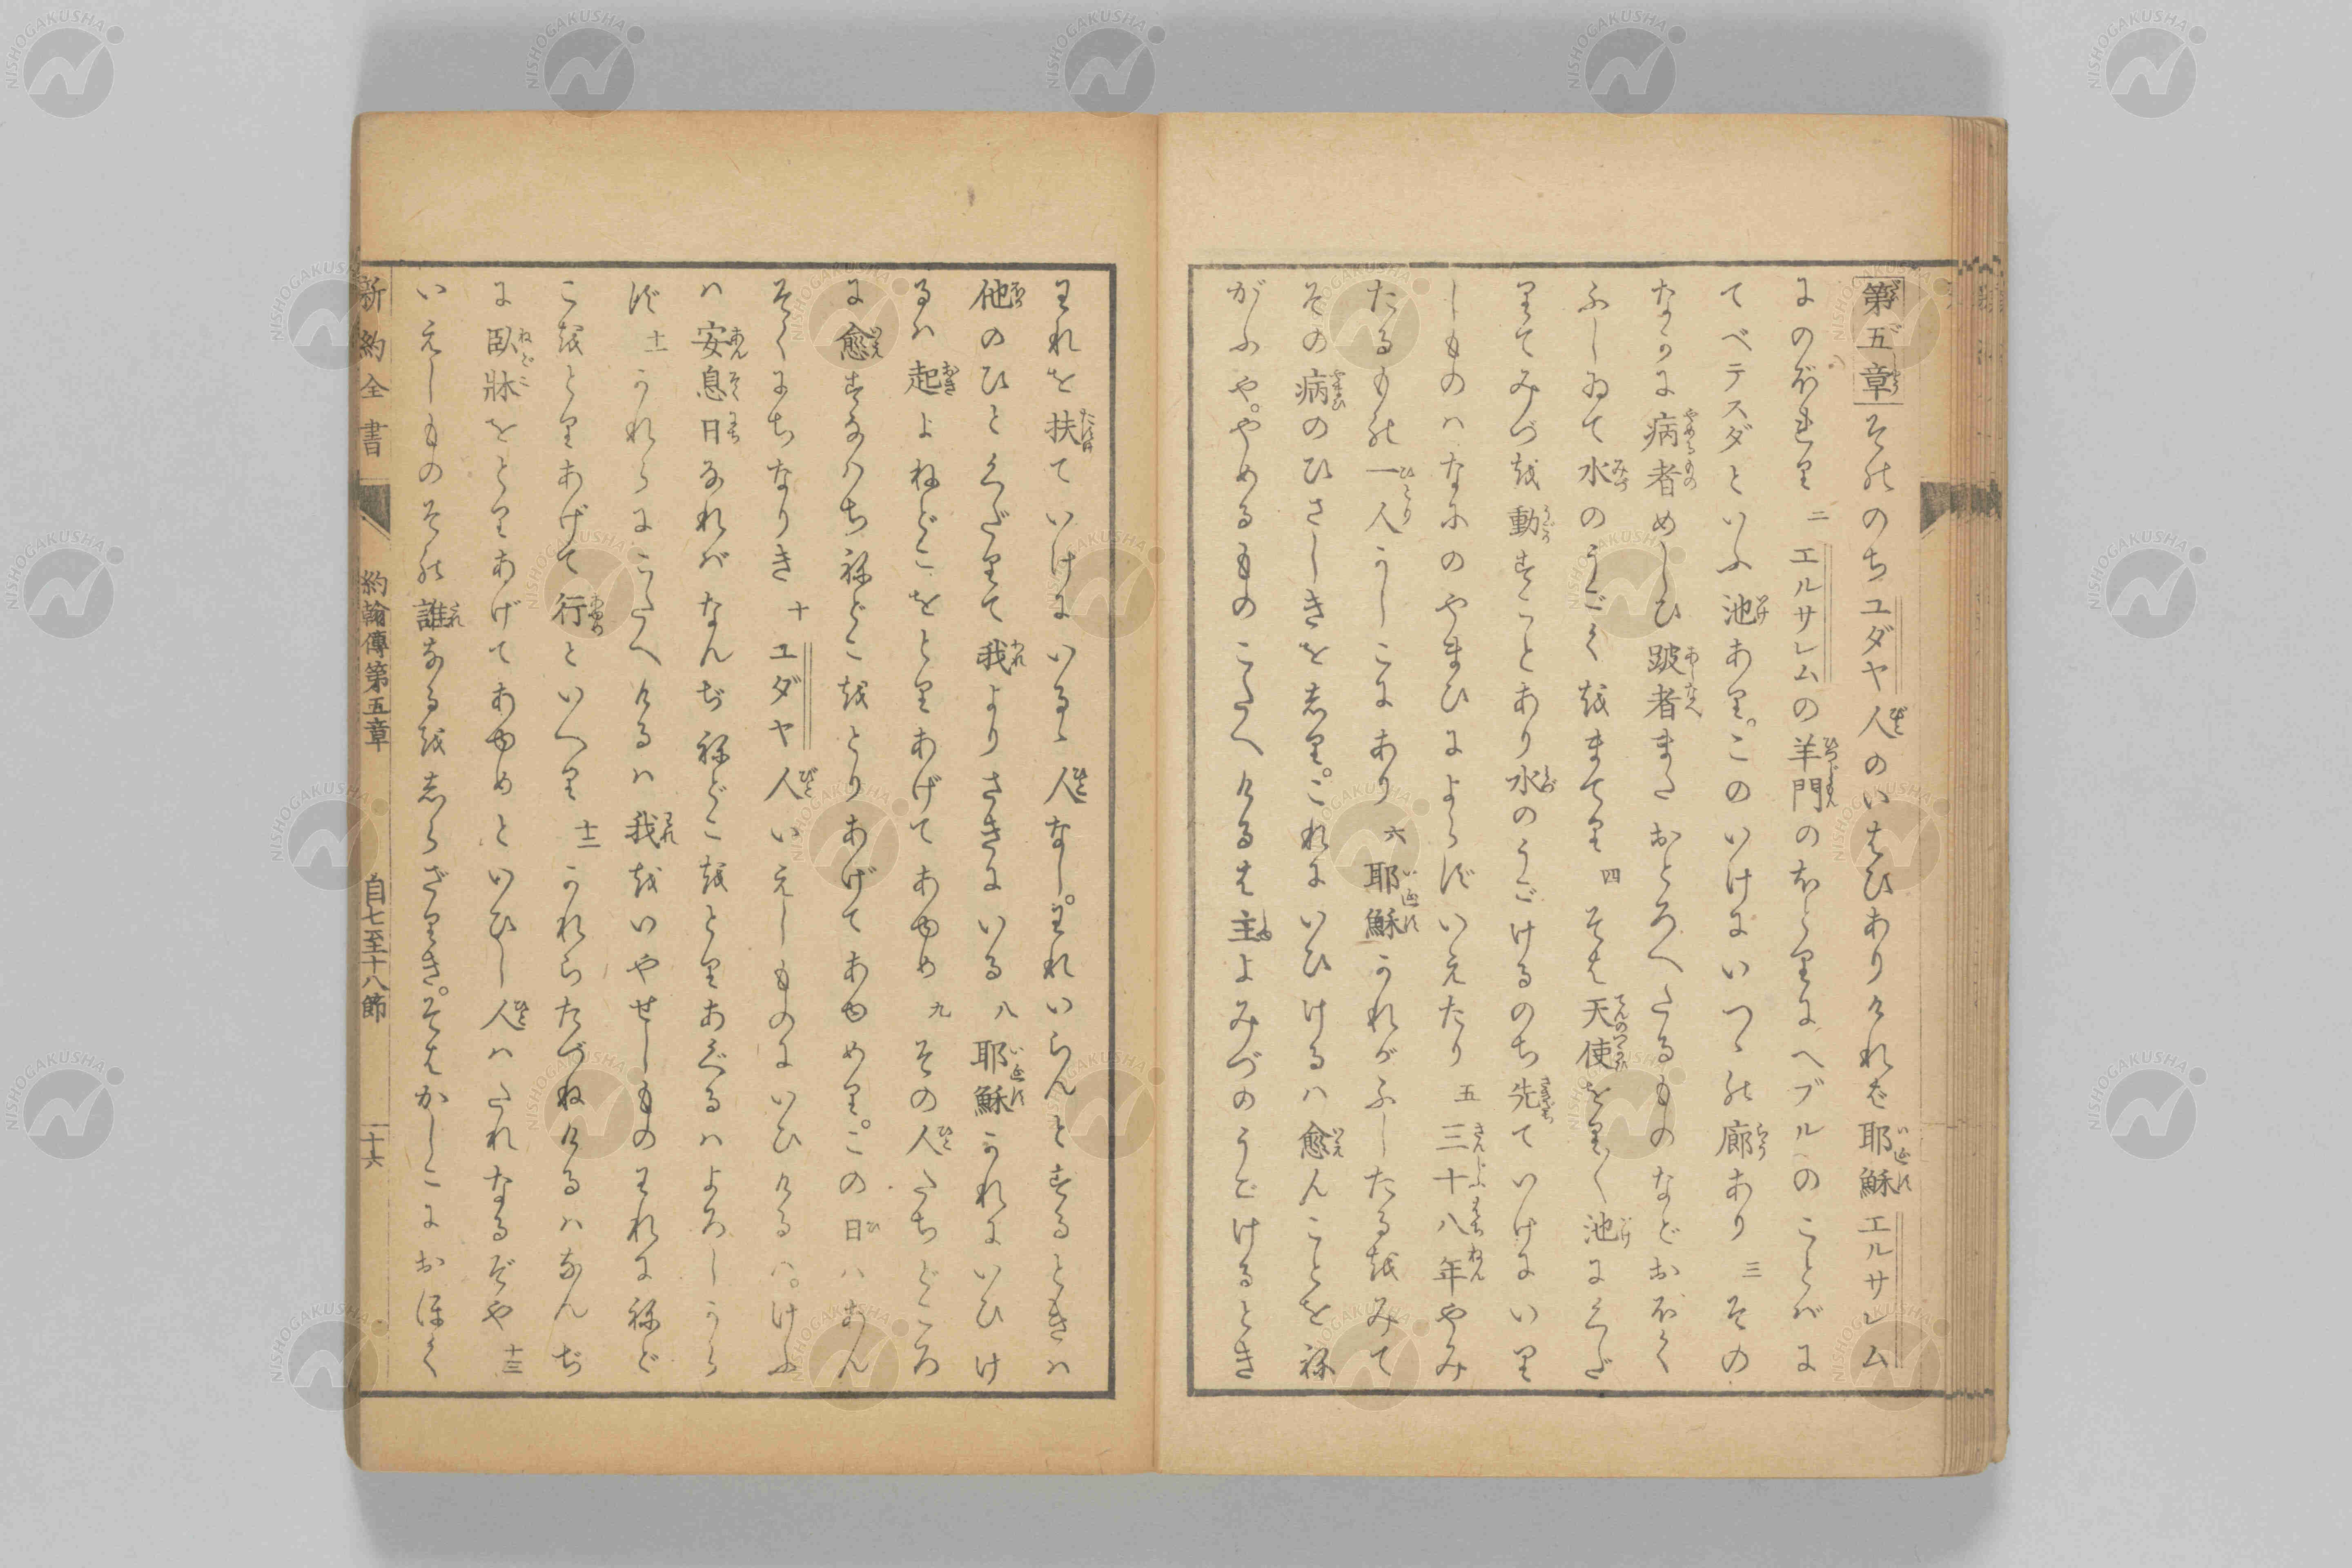 第五章 そののちユダヤ人のいはひありければ耶穌エルサレム
にのぼれり 二 エルサレムの羊門のほとりにヘブルのことばに
てベテスダといふ池あり。このいけにいつゝの廊あり 三 その
なかに病者めしひ跛者またおとろへたるものなどおぼく
ふしゐて水のうごくをまてり 四 そは天使をり〱池にくだ
りてみづを動すことあり水のうごけるのち先ていけにいり
しものハなにのやまひによらずいえたり 五 三十八年やみ
たるもの一人かしこにあり 六 耶穌かれがふしたるをみて
その病のひさしきをしり。これにいひけるハ愈んことをね
がふや。やめるものこたへけるは主よみづのうごけるとき
われを扶ていけにいるゝ人なし。われいらんとするときハ
他のひとくだりて我よりさきにいる 八 耶穌かれにいひけ
るハ起よねどこをとりあげてあゆめ 九 その人たちどころ
に愈すなハちねどこをとりあげてあゆめり。この日ハあん
そくにちなりき 十 ユダヤ人いえしものにいひけるハ。けふ
ハ安息日なれバなんぢねどこをとりあぐるハよろしから
ず 十一 かれらにこたへけるハ我をいやせしものわれにねど
こをとりあげて行といへり 十二 かれらたづねけるハなんぢ
に臥牀をとりあげてあゆめといひし人ハたれなるぞや 十三
いえしものその誰なるをしらざりき。そはかしこにおほく
新約全書 約翰傳第五章 自七至十八節 二十六